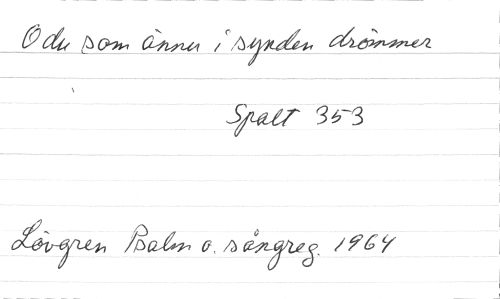 O du som ännu i synden drömmer
Spalt 353
Lövgren Psalm o. sångreg. 1964